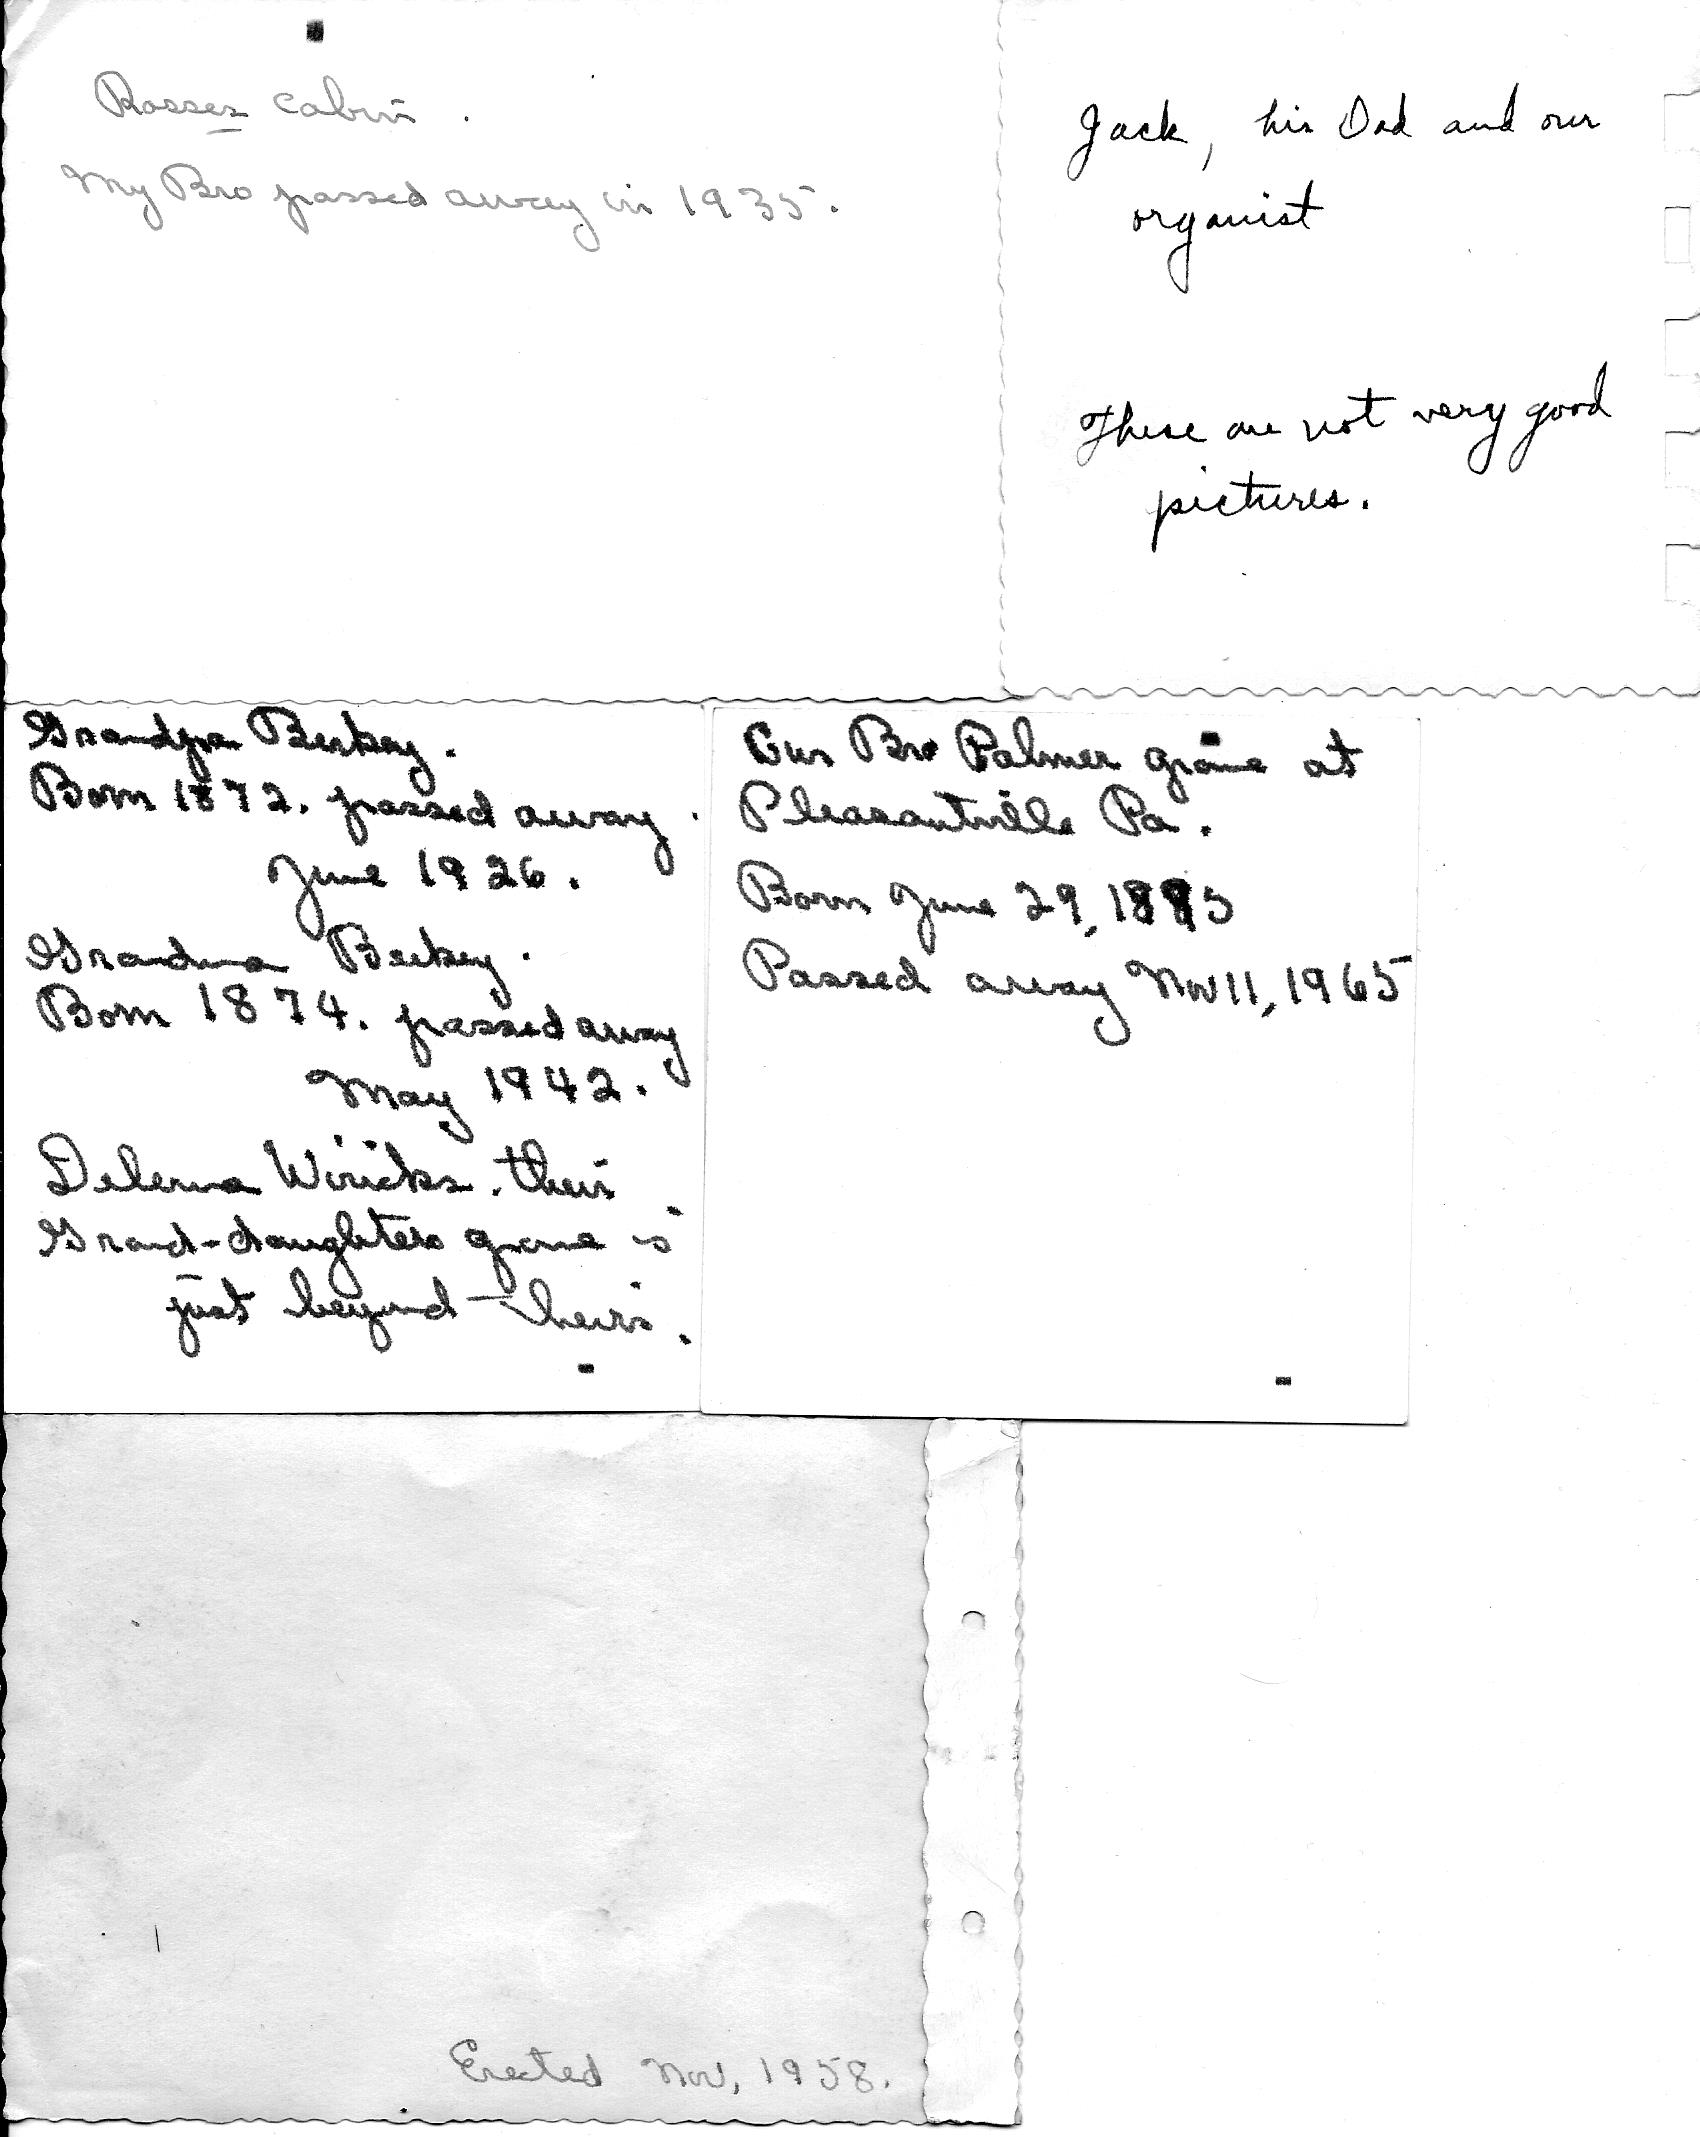 Rosses cabin.
My Bro passed away in 1935.
Jack, his Dad and our
organist
These are not very good
pictures.
Grandpa Berkey.
Born 1872. passed away
June 1926.
Grandma Berkey.
Born 1874. passed away
May 1942.
Wiricks. their
Grand-daughters grave is
just beyond theirs.
Our Bro Palmer grave at
Pleasantville Pa.
Born June 29,
Passed away Nov 11, 1965
Erected Nov, 1958.